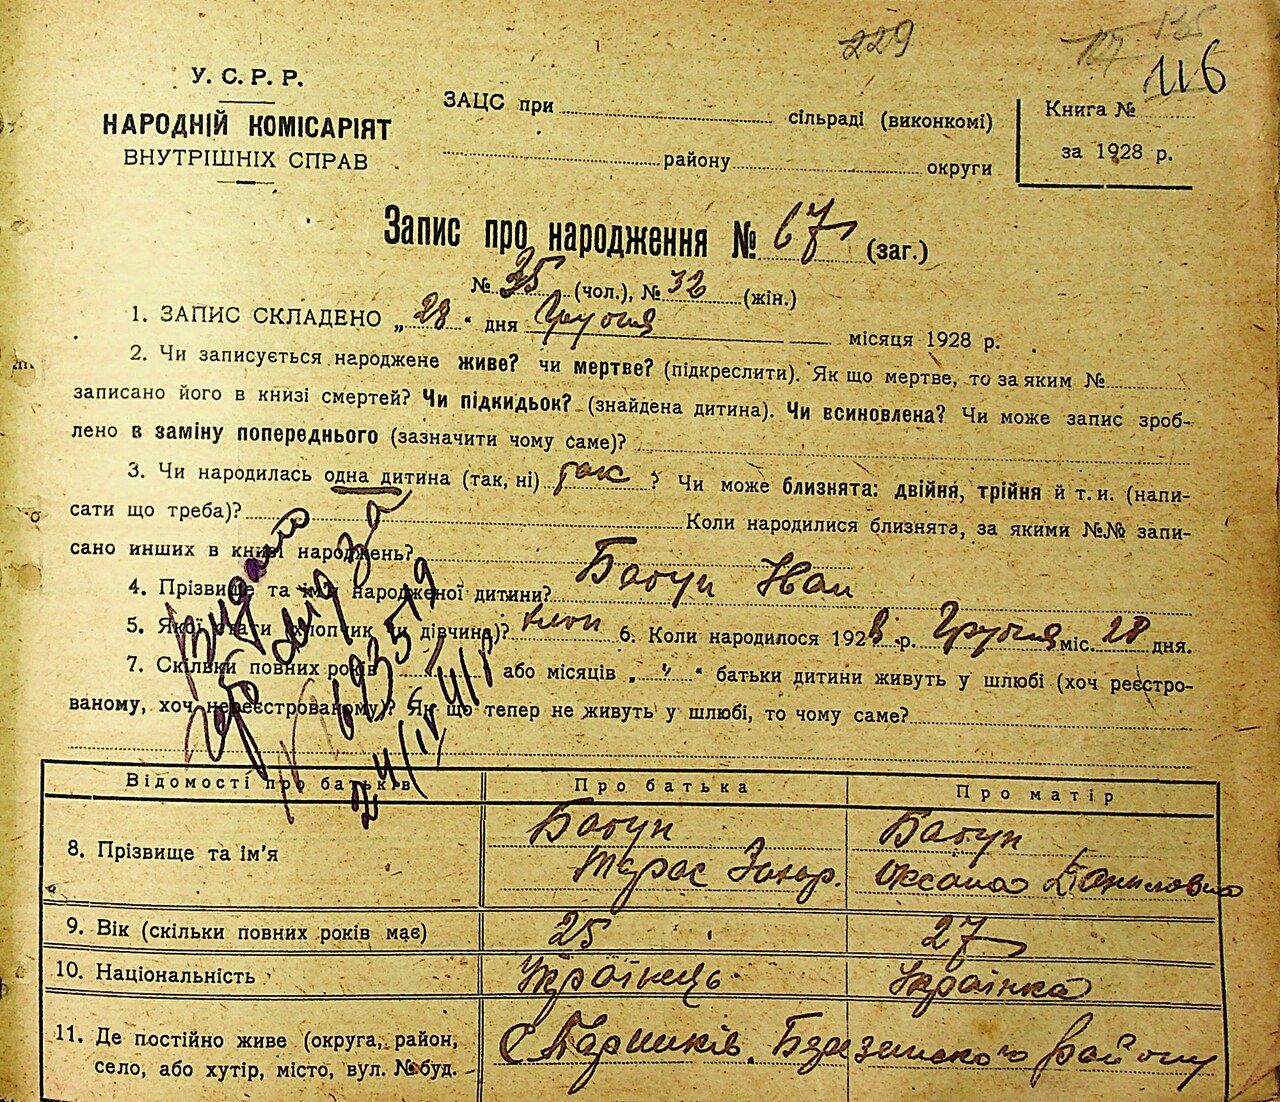 229
135
116
У. С. Р. Р.
НАРОДНІЙ КОМІСАРІЯТ
ВНУТРІШНІХ СПРАВ
ЗАЦС при сільраді (виконкомі)
району округи
Книга №
за 1928 р.
Запис про народження № 67 (заг.)
№ 35 (чол.), № 32 (жін.)
1. ЗАПИС СКЛАДЕНО „28“ дня Грудня місяця 1928 р.
2. Чи записується народжене живе? чи мертве? (підкреслити). Як що мертве, то за яким №
записано його в книзі смертей? Чи підкидьок? (знайдена дитина). Чи всиновлена? Чи може запис зроб-
лено в заміну попереднього (зазначити чому саме)?
3. Чи народилась одна дитина (так, ні) так ? Чи може близнята: двійня, трійня й т. и. (напи-
сати що треба)? Коли народилися близнята, за якими №№ запи-
сано инших в книзі народжень?
4. Прізвище та ім'я народженої дитини? Батун Іван
5. Якої стати (хлопчик чи дівчина)? хлоп 6. Коли народилося 1928 р. Грудня міс. 28 дня.
7. Скільки повних років 1 або місяців „ “ батьки дитини живуть у шлюбі (хоч реєстро-
ваному, хоч нереєстрованому)? Як що тепер не живуть у шлюбі, то чому саме?
Видано
за
Відомості про батьків Про батька Про матір
8. Прізвище та ім'я Батун Тарас Захар. Батун Оксана Даниловна
9. Вік (скільки повних років має) 25 27
10. Національність Українець Українка
11. Де постійно живе (округа, район, с. Паришків Березанського району
село, або хутір, місто, вул. № буд.